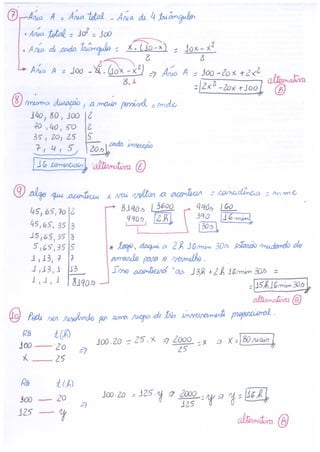 ⑦ Área A = Área total - Área de 4 triângulos
• Área total = 10² = 100
• Área de cada triângulo = x.(10-x) / 2 = 10x - x² / 2
Área A = 100 - 4.(10x - x²) / 2.1 ⇒ Área A = 100 - 20x + 2x²
= 2x² - 20x + 100
alternativa Ⓑ
⑧ mesma duração, a maior possível = mdc
140, 80, 100 | 2
70, 40, 50 | 2
35, 20, 25 | 5
7, 4, 5, | 20s cada inserção
16 comerciais alternativa Ⓔ
⑨ algo que aconteceu e vai voltar a acontecer = coincidência = mmc
45, 65, 70 | 2
45, 65, 35 | 3
15, 65, 35 | 3
5, 65, 35 | 5
1, 13, 7 | 7
1, 13, 1 | 13
1, 1, 1 | 8190s
8190s | 3600
990s | 2h
990s | 60
390 | 16min
30s
• Logo, daqui a 2h 16min 30s estarão mudando do
amarelo para o vermelho.
Isso acontecerá às 13h + 2h 16min 30s =
= 15h 16min 30s
alternativa
⑩ Pode ser resolvido por uma regra de três inversamente proporcional.
R$ t(h)
100 — 20
x — 25
⇒ 100.20 = 25.x ⇒ 2000 / 25 = x ⇒ x = 80 reais
R$ t(h)
100 — 20
125 — y
⇒ 100.20 = 125.y ⇒ 2000 / 125 = y ⇒ y = 16h
alternativa Ⓑ